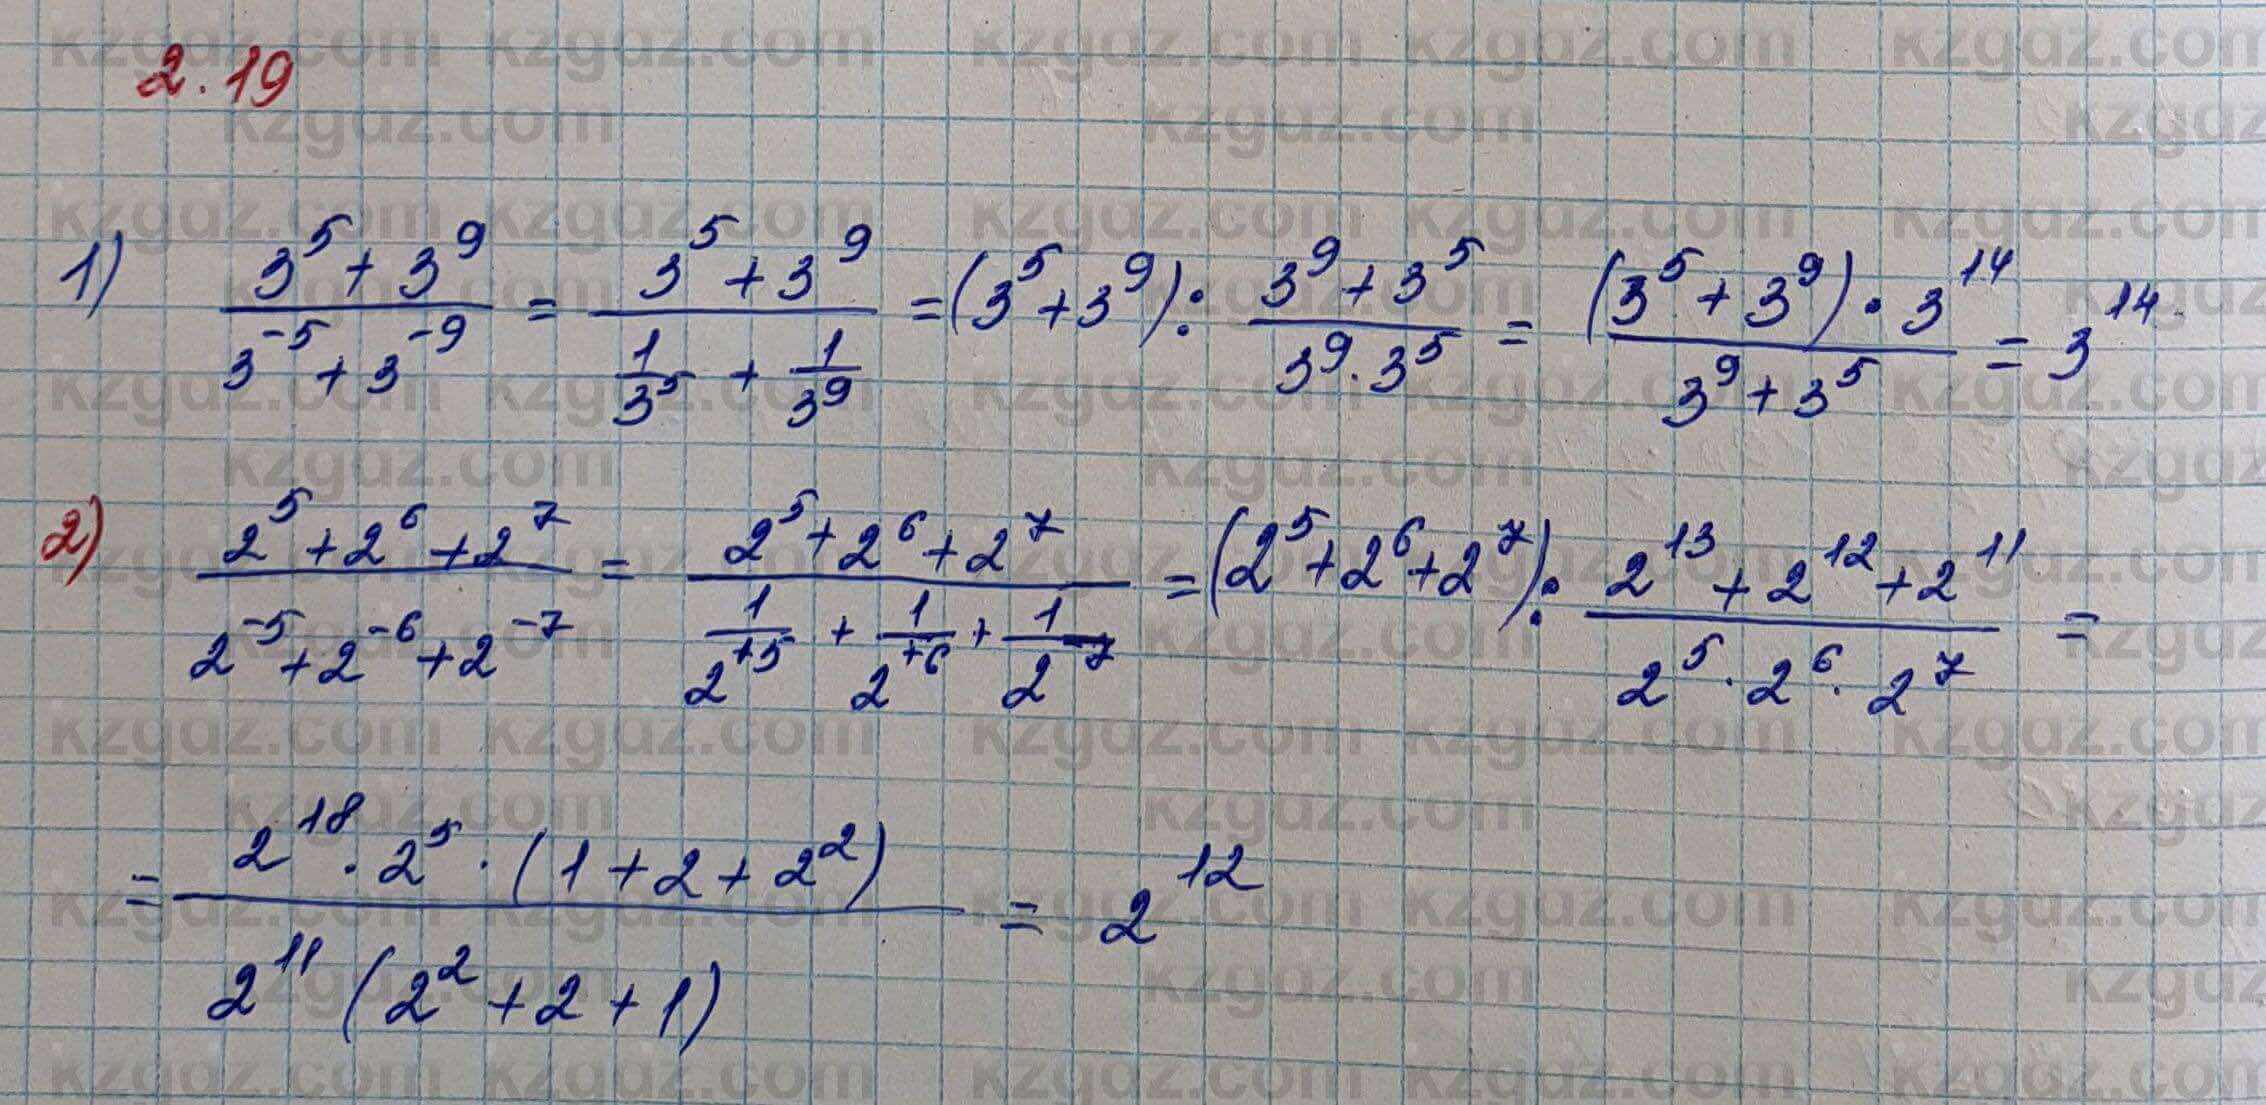 2.19
1) (3^5 + 3^9)/(3^-5 + 3^-9) = (3^5 + 3^9)/(1/3^5 + 1/3^9) = (3^5 + 3^9) : (3^9 + 3^5)/(3^9 · 3^5) = ((3^5 + 3^9) · 3^14)/(3^9 + 3^5) = 3^14
2) (2^5 + 2^6 + 2^7)/(2^-5 + 2^-6 + 2^-7) = (2^5 + 2^6 + 2^7)/(1/2^+5 + 1/2^+6 + 1/2^7) = (2^5 + 2^6 + 2^7) : (2^13 + 2^12 + 2^11)/(2^5 · 2^6 · 2^7) =
= (2^18 · 2^5 · (1 + 2 + 2^2))/(2^11 (2^2 + 2 + 1)) = 2^12
kzgdz.com